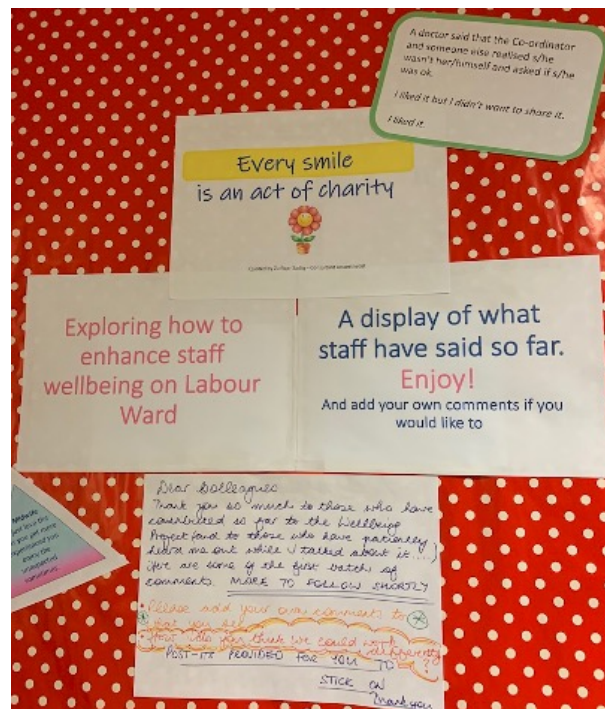 A doctor said that the Co-ordinator
and someone else realised s/he
wasn't her/himself and asked if s/he
was ok.
I liked it but I didn't want to share it.
I liked it.
Every smile
is an act of charity
Exploring how to
enhance staff
wellbeing on Labour
Ward
A display of what
staff have said so far.
Enjoy!
And add your own comments if you
would like to
Dear Colleagues
Thank you so much to those who have
contributed so far to the Wellbeing
Project (and to those who have patiently
heard me out while I talked about it....)
are some of the first batch of
comments. MORE TO FOLLOW SHORTLY
Please add your own comments to
what you see
How do you think we could work differently?
POST-ITS PROVIDED FOR YOU TO
STICK ON
Thank you